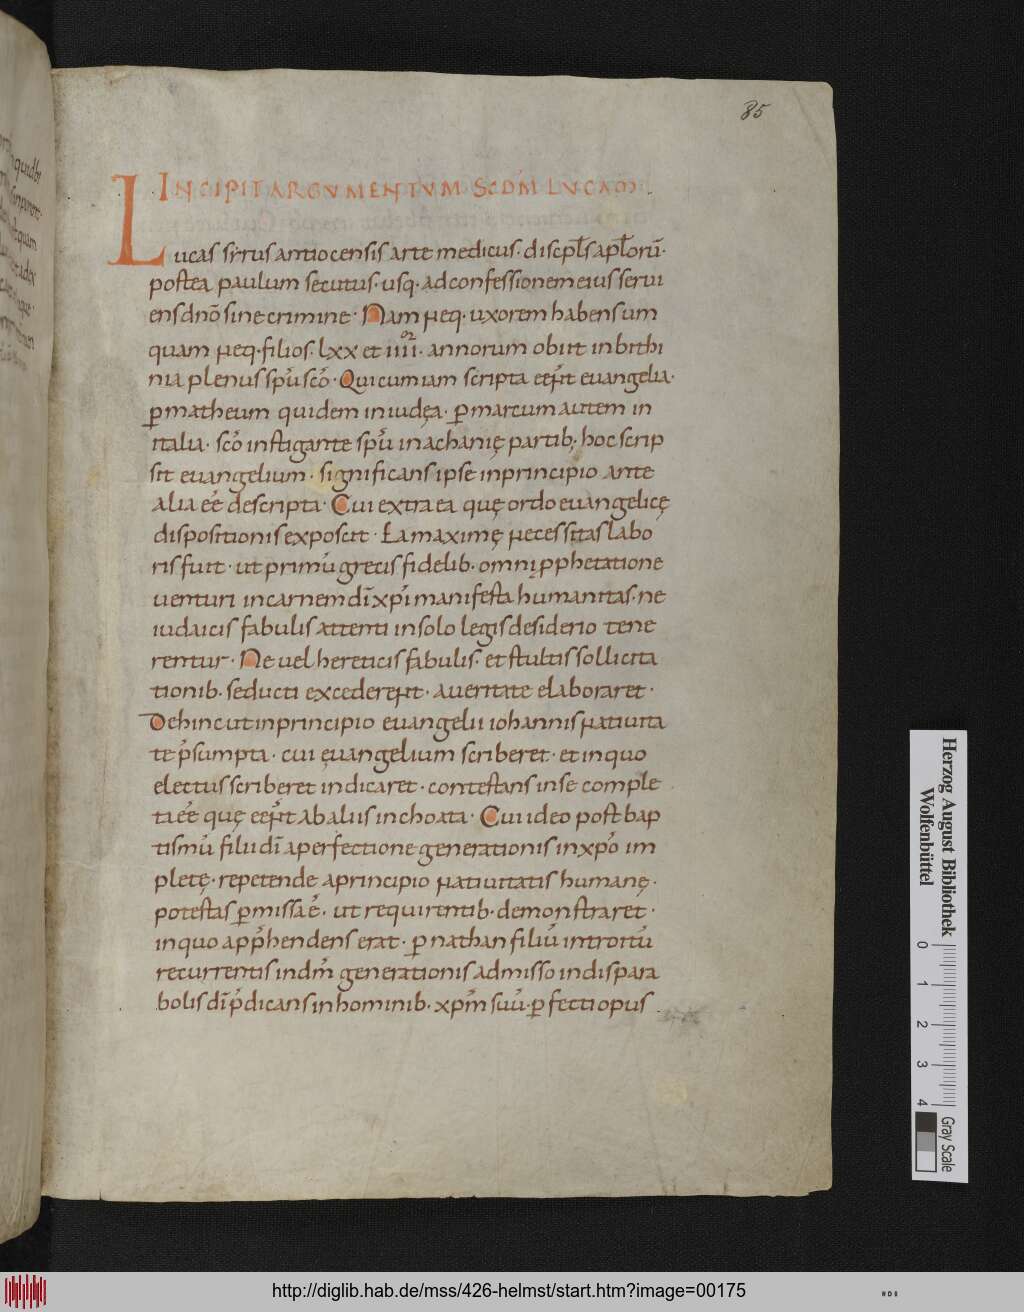 85
INCIPIT ARGVMENTVM SCDM LVCAM
Lucas sirus antiocensis arte medicus· discpls aplorū·
postea paulum secutus· usq· ad confessionem eius serui
ens dnō sine crimine· Nam neq· uxorem habens um
quam neq· filios· lxx et iiii or· annorum obiit in bithi
nia plenus spū scō· Qui cum iam scripta eēnt euangelia·
p matheum quidem in iudęa· p marcum autem in
italia· scō instigante spū in achanię partib· hoc scrip
sit euangelium· significans ipse in principio ante
alia eē descripta· Cui extra ea quę ordo euangelicę
dispositionis exposcit· Ea maximę necessitas labo
ris fuit· ut primū grecis fidelib· omni pphetatione
uenturi in carnem dī xpī manifesta humanitas· ne
iudaicis fabulis attenti in solo legis desiderio tene
rentur· Ne uel hereticis fabulis· et stultis sollicita
tionib· seducti excederent· a ueritate elaboraret·
Dehinc ut in principio euangelii iohannis natiuita
te psumpta· cui euangelium scriberet· et in quo
electus scriberet indicaret· contestans in se comple
ta eē quę eēnt ab aliis inchoata· Cui ideo post bap
tismū filii dī a perfectione generationis in xpō im
pletę· repetende a principio natiuitatis humanę·
potestas pmissa ē· ut requirentib· demonstraret·
in quo apphendens erat· p nathan filiū introitū
recurrentis in dm generationis admisso indispara
bolis dī pdicans in hominib· xpm suū· pfecti opus
Herzog August Bibliothek
Wolfenbüttel
0 1 2 3 4
Gray Scale
http://diglib.hab.de/mss/426-helmst/start.htm?image=00175